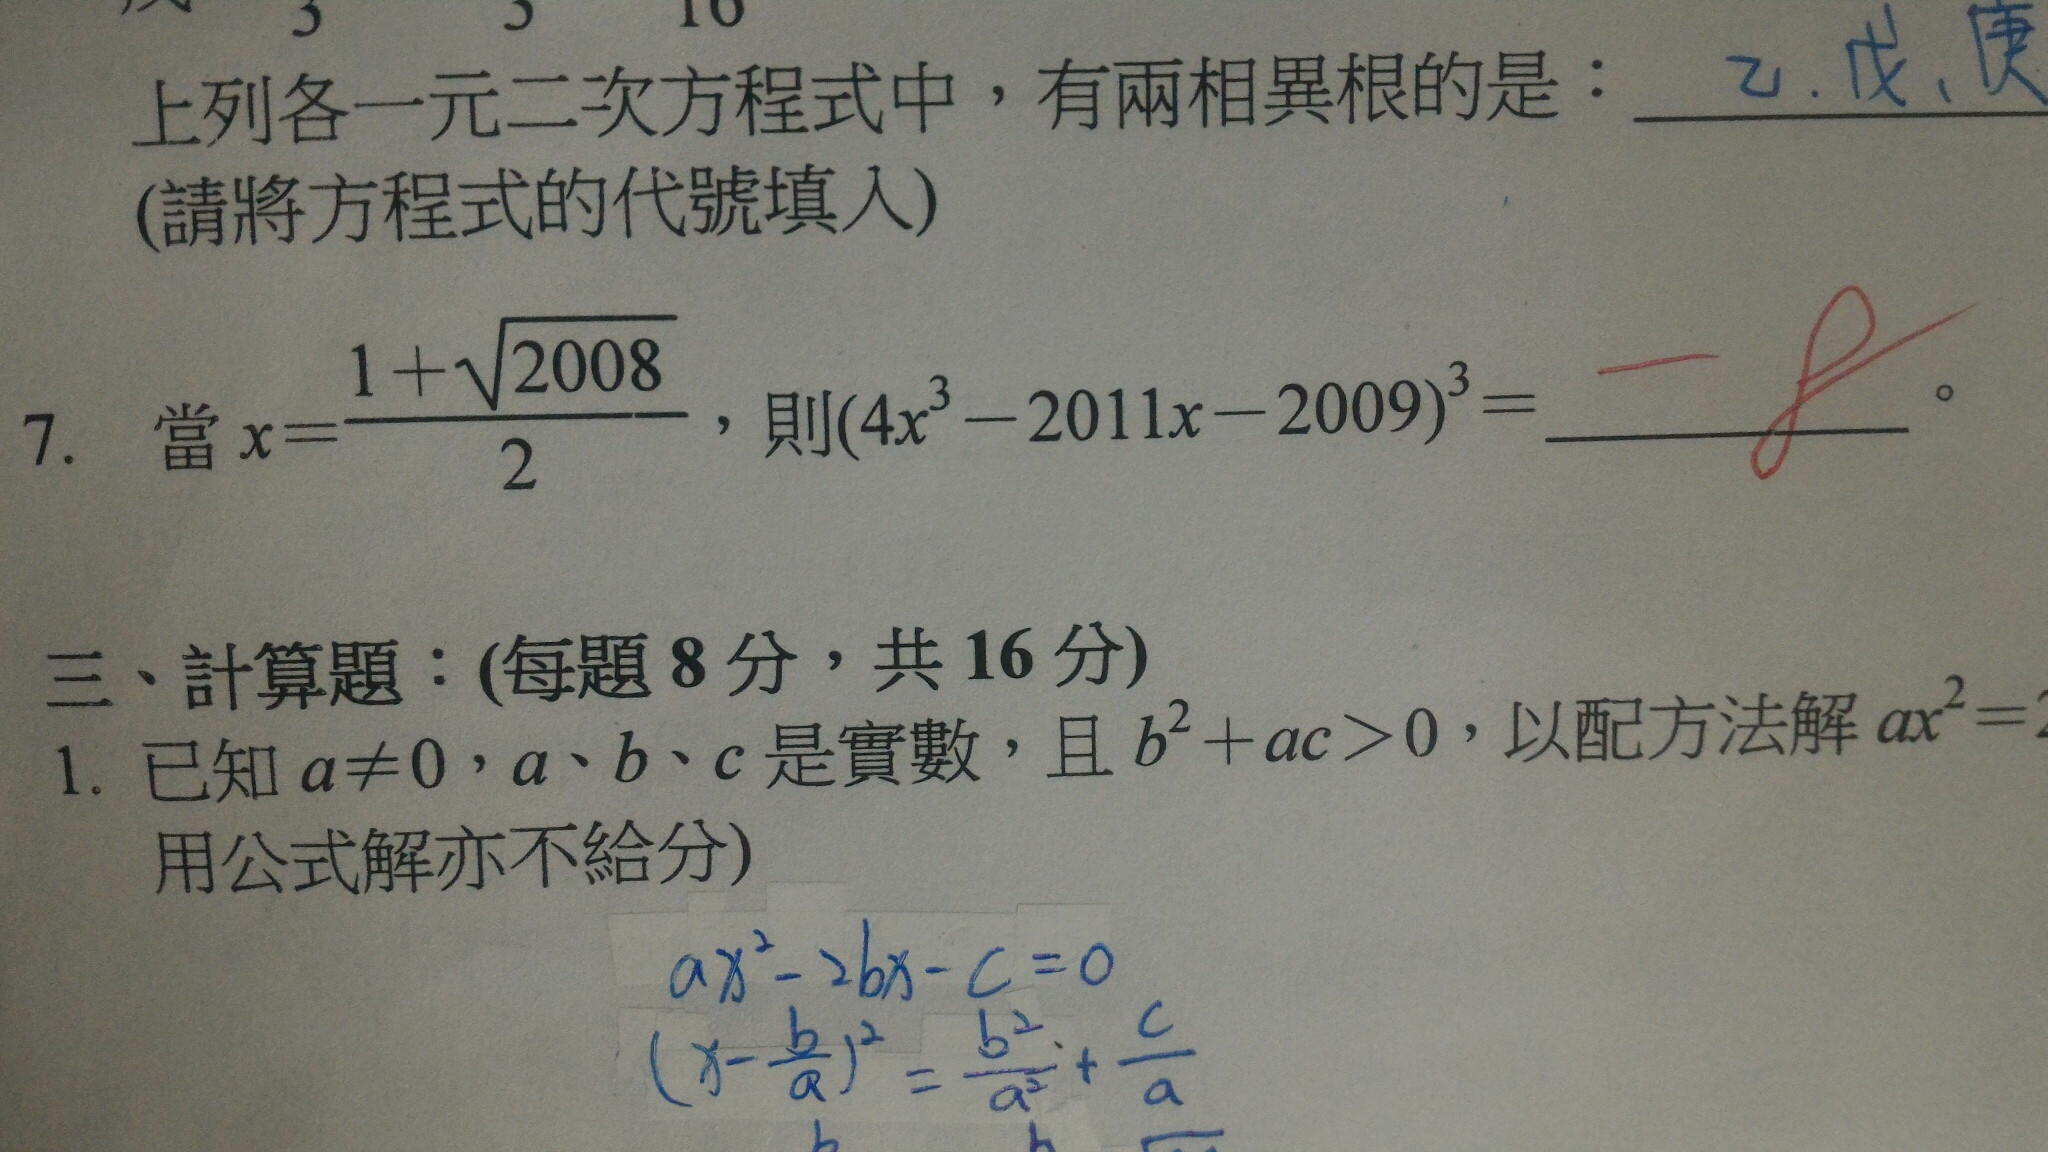 3 3 16
上列各一元二次方程式中，有兩相異根的是：乙.戊、庚
(請將方程式的代號填入)
7. 當 x=\frac{1+\sqrt{2008}}{2}，則(4x³－2011x－2009)³=－8。
三、計算題：(每題 8 分，共 16 分)
1. 已知 a≠0，a、b、c 是實數，且 b²＋ac＞0，以配方法解 ax²=
用公式解亦不給分)
ax²-2bx-c=0
(x-\frac{b}{a})²=\frac{b²}{a²}+\frac{c}{a}